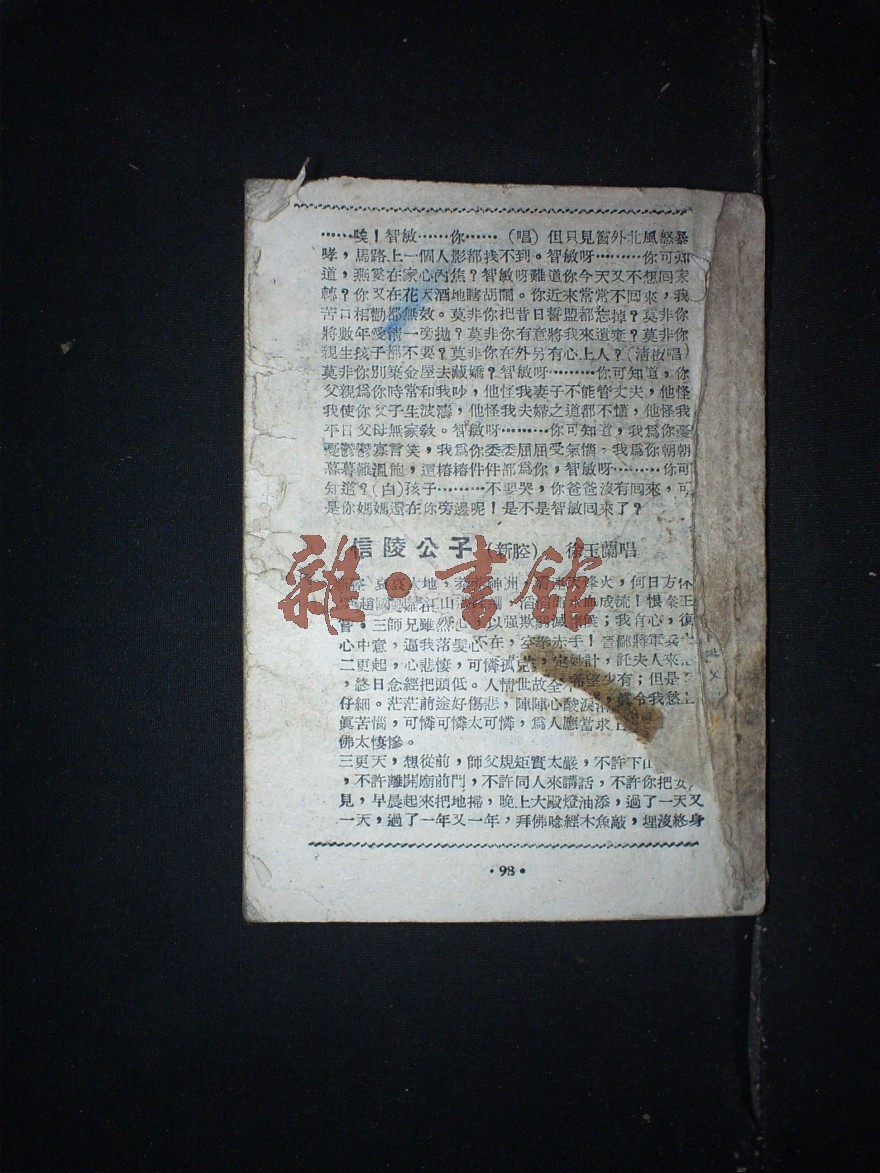 ……唉！智敏……你……（唱）但只見窗外北風怒暴
哮，馬路上一個人影都找不到。智敏呀………你可知
道，燕棠在家心內焦？智敏呀難道你今天又不想回家
轉？你又在花天酒地瞎胡鬧。你近來常常不回來，我
苦口相勸都無效。莫非你把昔日誓盟都忘掉？莫非你
將數年愛情一旁拋？莫非你有意將我來遺棄？莫非你
親生孩子都不要？莫非你在外另有心上人？（清板唱）
莫非你別築金屋去藏嬌？智敏呀………你可知道，你
父親爲你時常和我吵，他怪我妻子不能管丈夫，他怪
我使你父子生波濤，他怪我夫婦之道都不懂，他怪我
平日父母無家敎。智敏呀………你可知道，我爲你憂
憂鬱鬱寡言笑，我爲你委委屈屈受氣惱，我爲你朝朝
暮暮難溫飽，這樁樁件件都爲你，智敏呀………你可
知道？（白）孩子………不要哭，你爸爸沒有回來，可
是你媽媽還在你旁邊呢！是不是智敏回來了？
信陵公子（新腔） 徐玉蘭唱
哀哀大地，神州，烽火，何日方休
趙國 江山 血成流！恨秦王
三師兄雖然心 以强欺弱滅 侯；我有心，復
心中意，逼我落髮心不在，空拳赤手！晋鄙將軍兵
二更起，心悲悽，可憐孤兒 定妙計，託夫人來
，終日念經把頭低。人情世故全 希望少有；但是
仔細。茫茫前途好傷悲，陣陣心酸淚 眞令我愁
眞苦惱，可憐可憐太可憐，爲人應當求上
佛太悽慘。
三更天，想從前，師父規矩實太嚴，不許下山
，不許離開廟前門，不許同人來講話，不許你把女
見，早晨起來把地掃，晚上大殿燈油添，過了一天又
一天，過了一年又一年，拜佛唸經木魚敲，埋沒終身
•98•
雜•書館